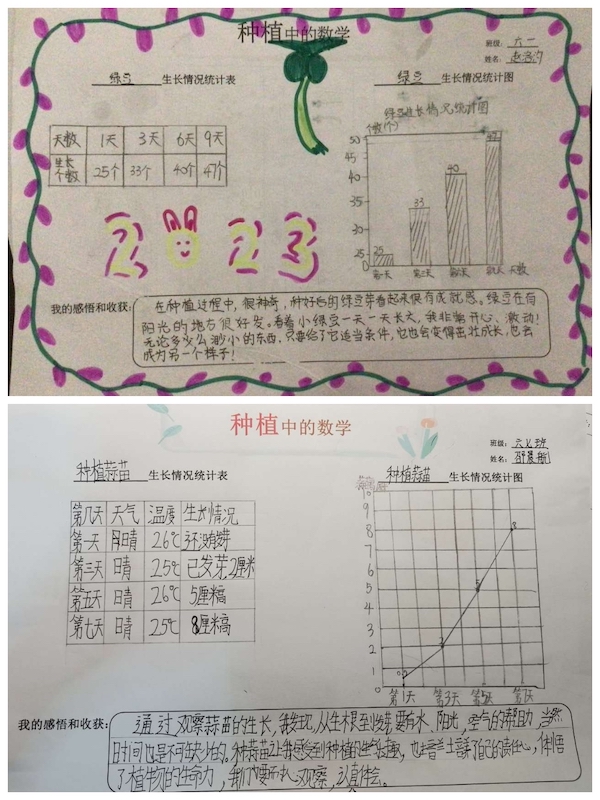 种植中的数学
班级：六一
姓名：赵洛汐
绿豆 生长情况统计表
天数 1天 3天 6天 9天
生长个数 25个 33个 40个 47个
绿豆 生长情况统计图
绿豆生长情况统计图
个数(个)
50
45
40
35
30
25
0
25 33 40 47
第一天 第三天 第六天 第九天 天数
2023
我的感悟和收获：
在种植过程中，很神奇，种好后的绿豆芽看起来很有成就感。绿豆在有
阳光的地方很好发。看着小绿豆一天一天长大，我非常开心、激动！
无论多么渺小的东西，只要给了它适当条件，它也会变得茁壮成长，也会
成为另一个样子！
种植中的数学
班级：六七班
姓名：
种植蒜苗 生长情况统计表
第几天 天气 温度 生长情况
第一天 晴 26℃ 还没发芽
第三天 晴 25℃ 已发芽,2厘米
第五天 晴 26℃ 5厘米高
第七天 晴 25℃ 8厘米高
种植蒜苗 生长情况统计图
9
8
7
6
5
4
3
2
1
0
0.5 2 5 8
第1天 第3天 第5天 第7天
我的感悟和收获：
通过观察蒜苗的生长，我发现，从生根至收获，要有水、阳光，空气的帮助，当然
时间也是不可缺少的。种蒜苗让我感受到种植的乐趣，也培养了自己的责任心，体悟
了植物的生命力，我们要用心观察，认真体会。